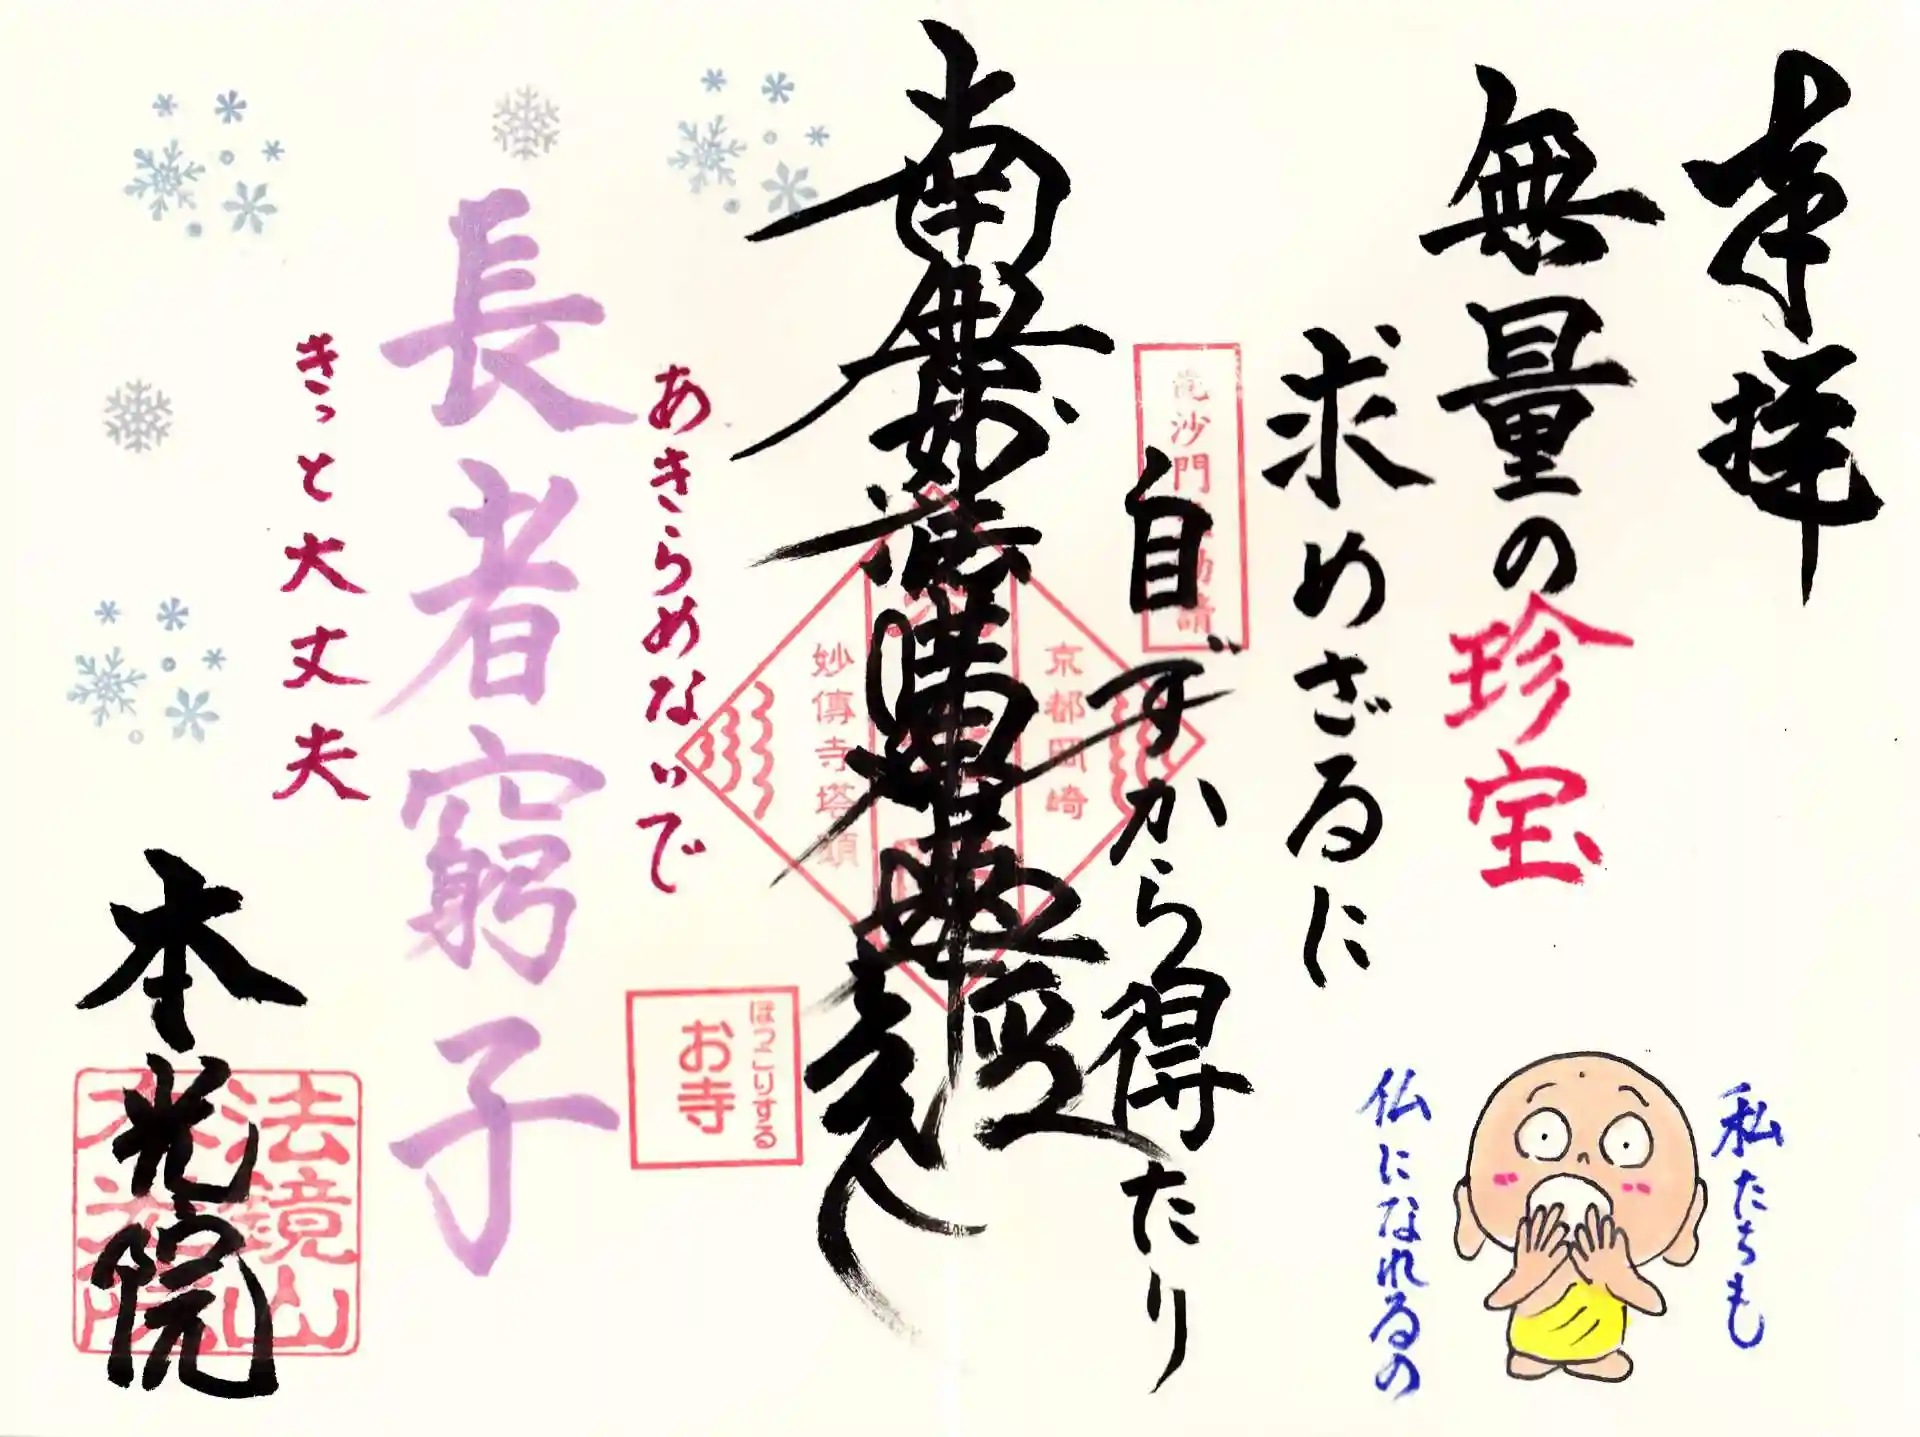 奉拝
無量の珍宝
求めざるに
自ずから得たり
私たちも
仏になれるの
毘沙門
請
京都岡崎
妙傳寺塔頭
南無妙法蓮華経
ほっこりする
お寺
あきらめないで
長者窮子
きっと大丈夫
本光院
法鏡山
本光院